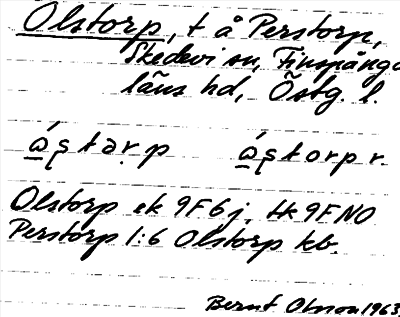 Olstorp, t å Perstorp,
Skedevi sn, Finspånga
läns hd, Östg. l.
å̱ʂtarp å̱ʂtorp r.
Olstorp ek 9F6j, Hk 9F NO
Perstorp 1:6 Olstorp kb.
Bernt Olsson 1963